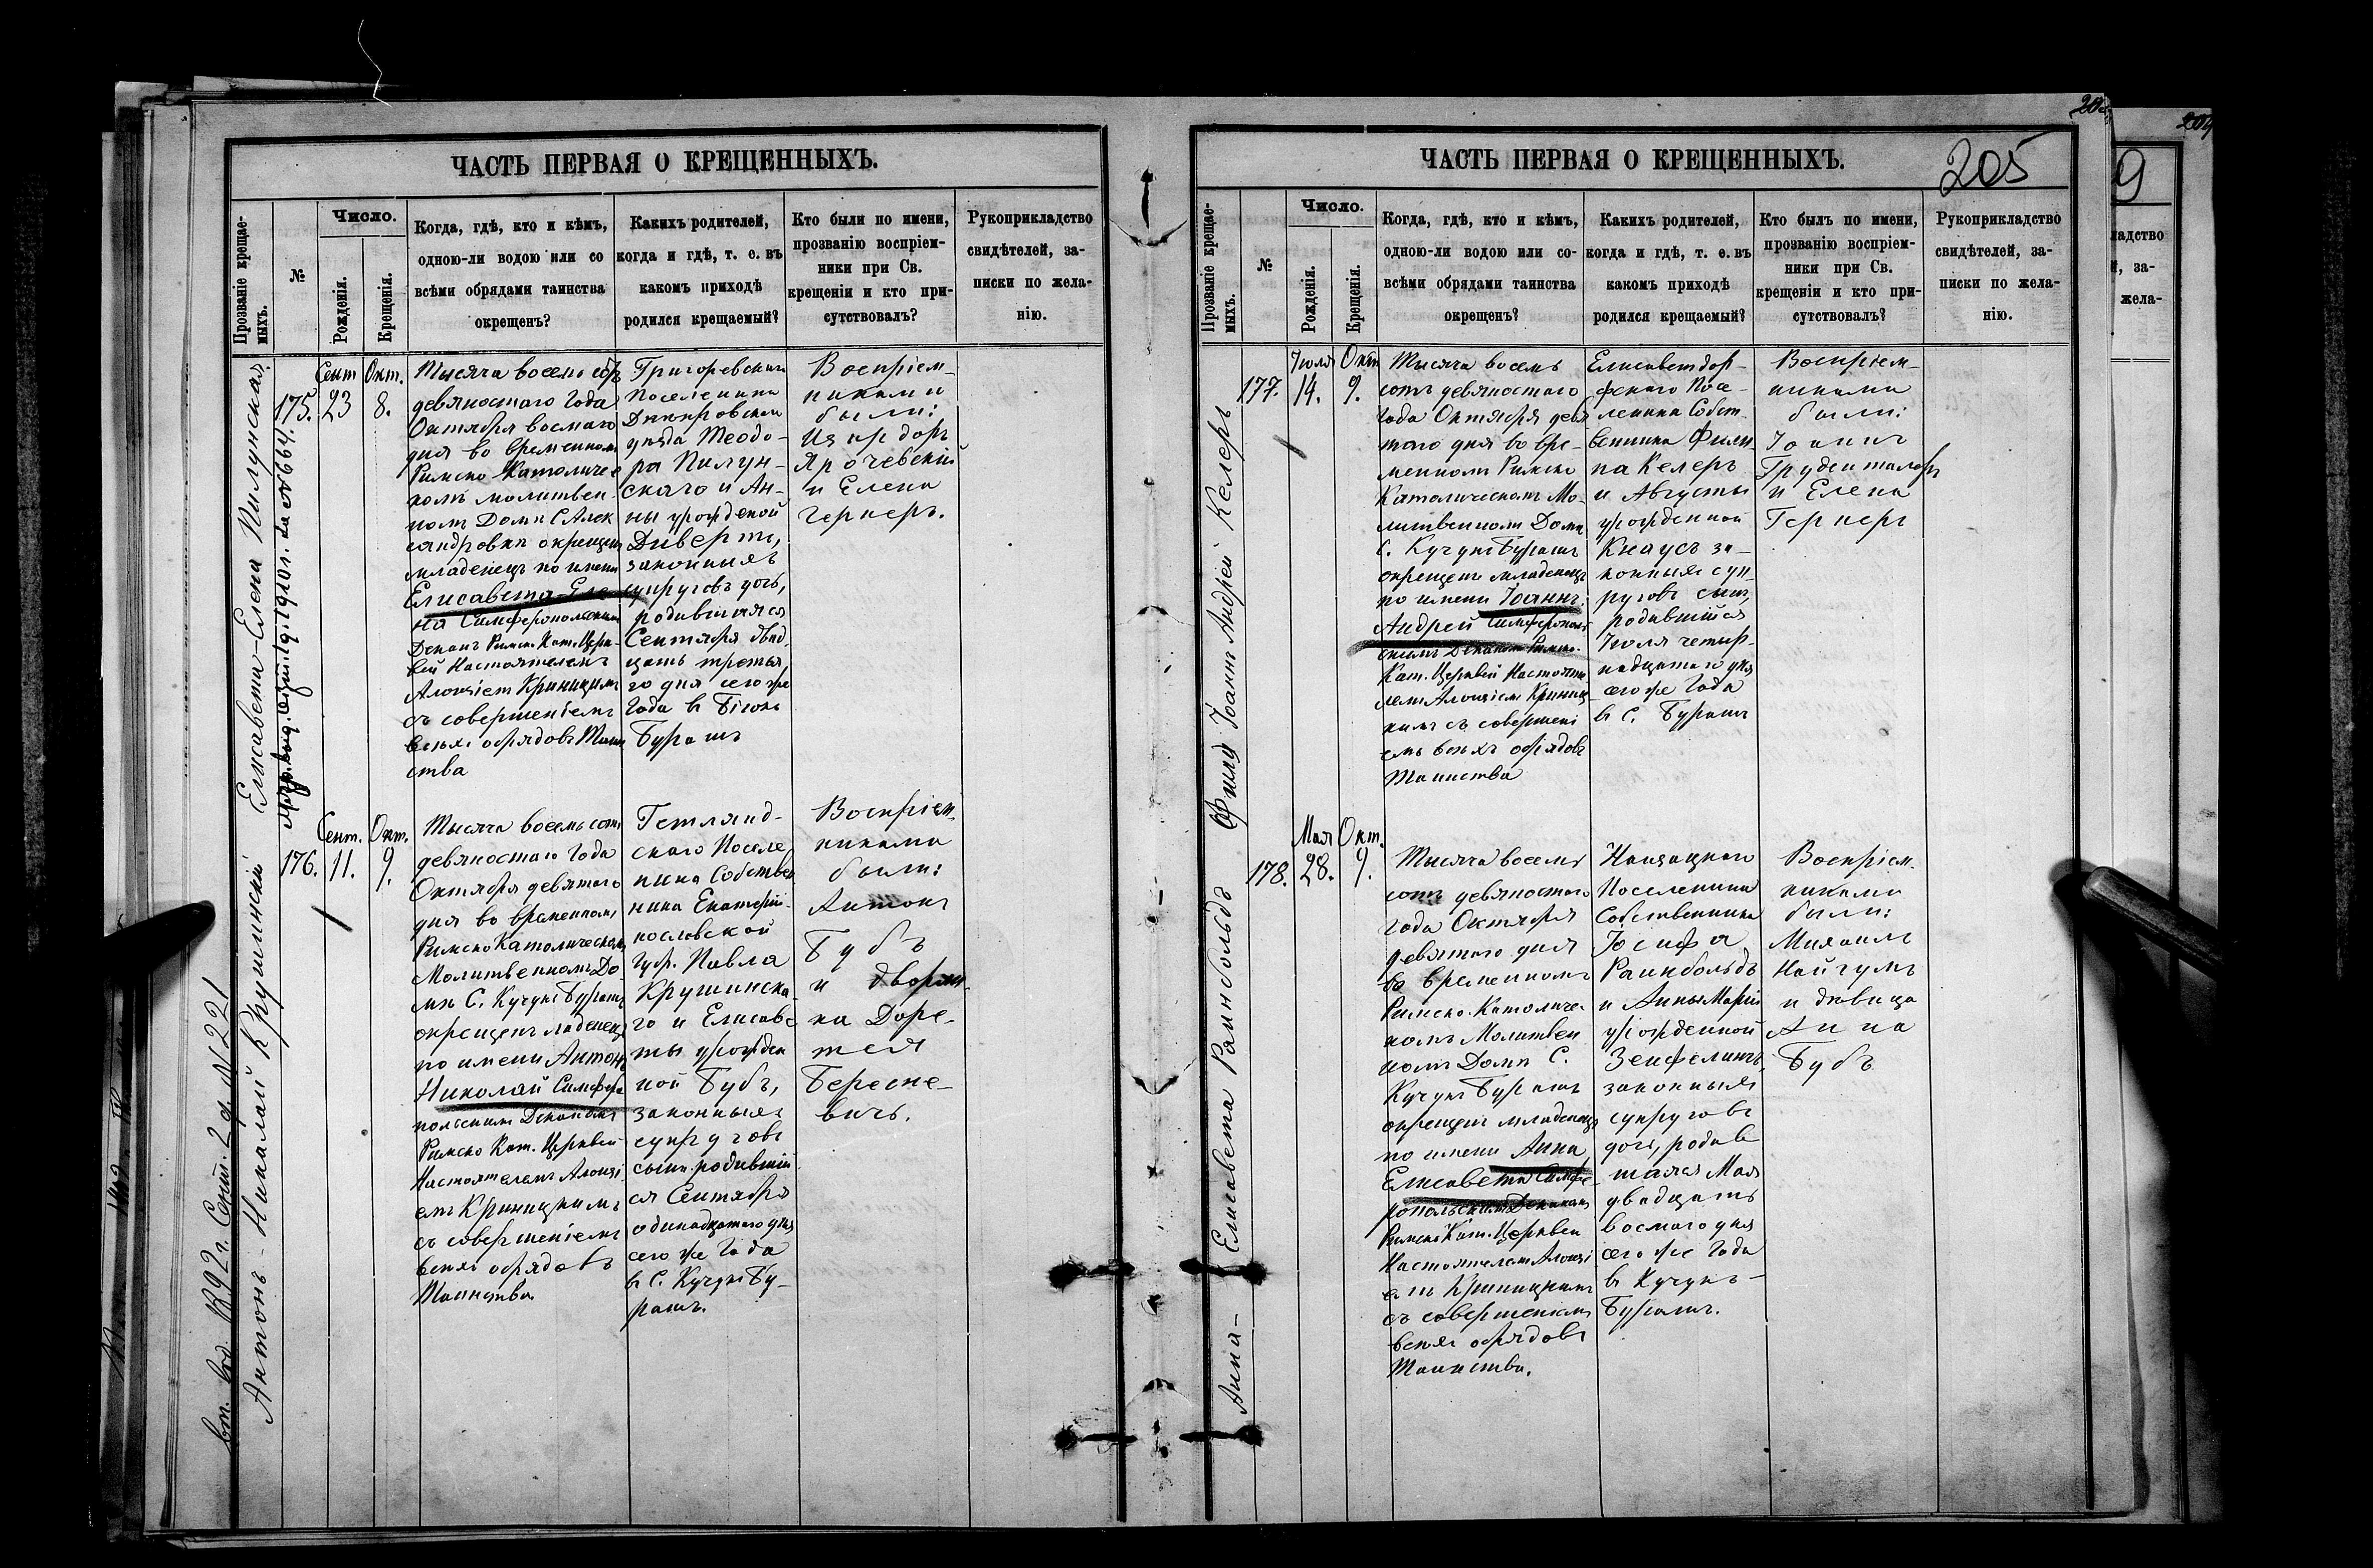 ЧАСТЬ ПЕРВАЯ О КРЕЩЕННЫХЪ.
Прозваніе крещае-
мыхъ.
№
Число.
Рожденія.
Крещенія.
Когда, гдѣ, кто и кѣмъ,
одною-ли водою или со
всѣми обрядами таинства
окрещенъ?
Какихъ родителей,
когда и гдѣ, т. е. въ
какомъ приходѣ
родился крещаемый?
Кто были по имени,
прозванію воспріем-
ники при Св.
крещеніи и кто при-
сутствовалъ?
Рукоприкладство
свидѣтелей, за-
писки по жела-
нію.
Елисавета-Елена Пилунская
175.
Сент
23
Окт.
8.
Тысяча восемь сотъ
девяностаго Года
Октября восмаго
дня во временномъ
Римско Католичес
комъ молитвен
номъ Домѣ С Алек
сандровкѣ окрещенъ
младенецъ по имени
Елисавета-Еле
на Симферопольским
Деканъ Римск. Кат. Церк-
вей Настоятелемъ
Алоизіем Криницкимъ
съ совершеніемъ
всѣхъ обрядовъ Таин
ства
Григоревскаго
Поселенина
Днѣпровскаго
уѣзда Теодо-
ра Пилун-
скаго и Ан-
ны урожденой
Диверт,
законныхъ
супруговъ дочь,
родившаяся
Сентября двад
цать третья
го дня сего же
Года в Біюкъ
Бурашъ
Воспріем-
никами
были:
Изидоръ
Ярочевскій
и Елена
Гернеръ.
вт. выд. 1892 г. Сент. 2 д. №221
Антонъ-Николай Крушинскій
176.
Сент.
11.
Окт.
9.
Тысяча восемь сотъ
девяностаго Года
Октября девятаго
дня во временномъ
Римско Католическомъ
Молитвенномъ До
мѣ С. Кучукъ Бурашъ
окрещенъ младенецъ
по имени Антонъ
Николай Симферо
польскимъ Деканомъ
Римско Кат. Церквей
Настоятелемъ Алоизі
емъ Криницкимъ
съ совершеніемъ
всѣхъ обрядовъ
Таинства
Гетланд-
скаго Поселе
нина Собствен
ника Екатери-
нославской
Губ. Павла
Крушинска
го и Елисаве
ты урожден
ной Бубъ,
законныхъ
супруговъ
сынъ родившій
ся Сентября
одинадцатаго дня
сего же Года
въ С. Кучукъ Бу-
рашъ.
Воспріем-
никами
были:
Антонъ
Бубъ
и дворян-
ка Доро-
тея
Бересне-
вичъ.
ЧАСТЬ ПЕРВАЯ О КРЕЩЕННЫХЪ.
205
Прозваніе крещае-
мыхъ.
№
Число.
Рожденія.
Крещенія.
Когда, гдѣ, кто и кѣмъ,
одною-ли водою или со-
всѣми обрядами таинства
окрещенъ?
Какихъ родителей,
когда и гдѣ, т. е. въ
какомъ приходѣ
родился крещаемый?
Кто былъ по имени,
прозванію воспріем-
ники при Св.
крещеніи и кто при-
сутствовалъ?
Рукоприкладство
свидѣтелей, за-
писки по жела-
нію.
Іоаннъ Андрей Келеръ
177.
Іюля
14.
Окт
9.
Тысяча восемь
сотъ девяностаго
Года Октября девя
таго дня во вре-
менномъ Римско
Католическомъ Мо-
литвенномъ Домѣ
С. Кучукъ Бурашъ
окрещенъ младенецъ
по имени Іоаннъ
Андрей Симферополь
скимъ Деканомъ Римско
Кат. Церквей Настояте
лемъ Алоизіем Криниц
кимъ съ совершені
емъ всѣхъ обрядовъ
Таинства
Елисаветдор-
фскаго Посе-
ленина Собст
венника Фили
па Келеръ
и Августы
урожденной
Кнаусъ за-
конныхъ суп-
руговъ сынъ,
родившійся
Іюля четыр-
надцатаго дня
сего же Года
въ С. Бурашъ
Воспріем-
никами
были:
Іоаннъ
Груденталеръ
и Елена
Гернеръ
Анна-Елисавета Раинбольдъ
178.
Мая
28.
Окт.
9.
Тысяча восемь
сотъ девяностаго
года Октября
девятаго дня
во временномъ
Римско-Католичес
комъ Молитвен
номъ Домѣ С.
Кучукъ Бурашъ
окрещенъ младенецъ
по имени Анна
Елисавета Симфе-
ропольскимъ Деканомъ
Римско Кат. Церквей
Настоятелемъ Алоизі
емъ Криницкимъ
съ совершеніемъ
всѣхъ обрядовъ
Таинства.
Поселенина
Собственника
Іосифа
Раинбольдъ
и Анны Маріи
урожденной
Зейфелингъ
законныхъ
супруговъ
дочь, родив
шаяся Мая
двадцать
восмаго дня
сего же Года
въ Кучукъ-
Бурашъ.
Воспріем-
никами
были:
Михаилъ
Найгумъ
и дѣвица
Анна
Бубъ
9
ладство
й, за-
жела-